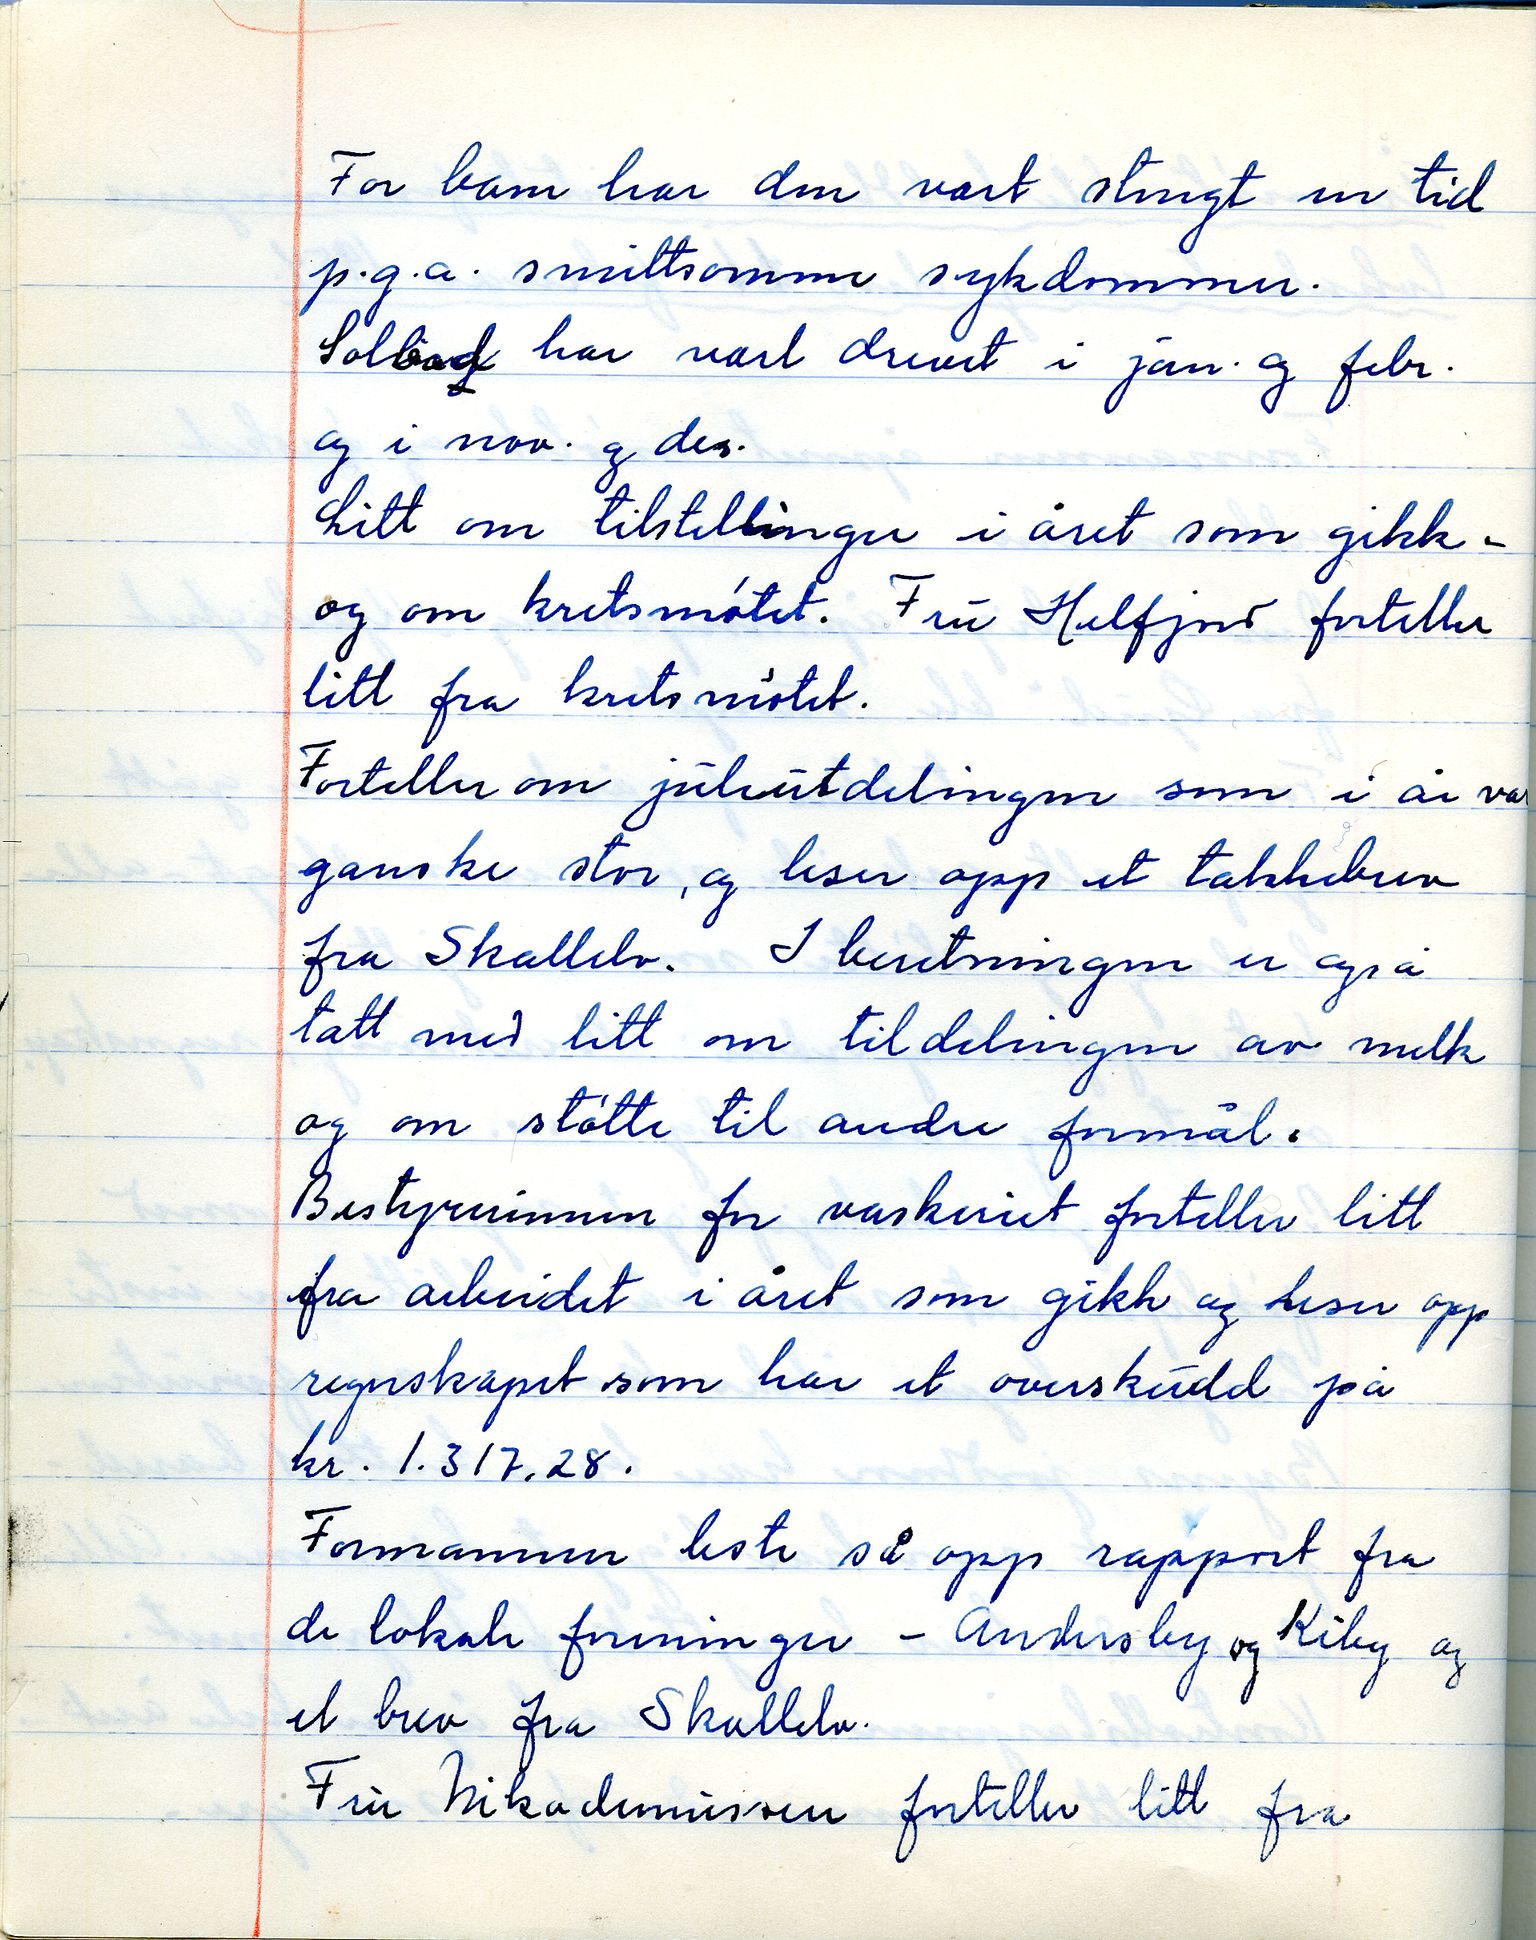 For barn har den vært stengt en tid
p.g.a. smittsomme sykdommer.
Solbad har vært drevet i jan. og febr.
og i nov. og des.
Litt om tilstellinger i året som gikk -
og om kretsmøtet. Fru Helfjord forteller
litt fra kretsmøtet.
Forteller om juleutdelingen som i år var
ganske stor, og leser opp et takkebrev
fra Skallelv. I beretningen er også
tatt med litt om tildelingen av melk
og om støtte til andre formål.
Bestyrerinnen for vaskeriet forteller litt
fra arbeidet i året som gikk og leser opp
regnskapet som har et overskudd på
kr. 1.317,28.
Formannen leste så opp rapport fra
de lokale foreninger - Andersby og Kiby og
et brev fra Skallelv.
Fru Nikodemussen forteller litt fra